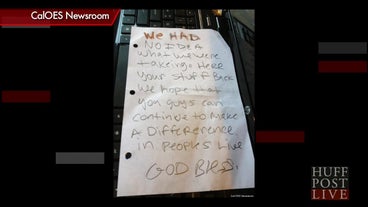 CalOES Newsroom
We HAD
NO IDEA
what we were
takeing. Here
Your stuff Back
We hope that
you guys can
continue to make
A Difference
in peoples Live
GOD Bless.
CalOES Newsroom
HUFF
POST
LIVE